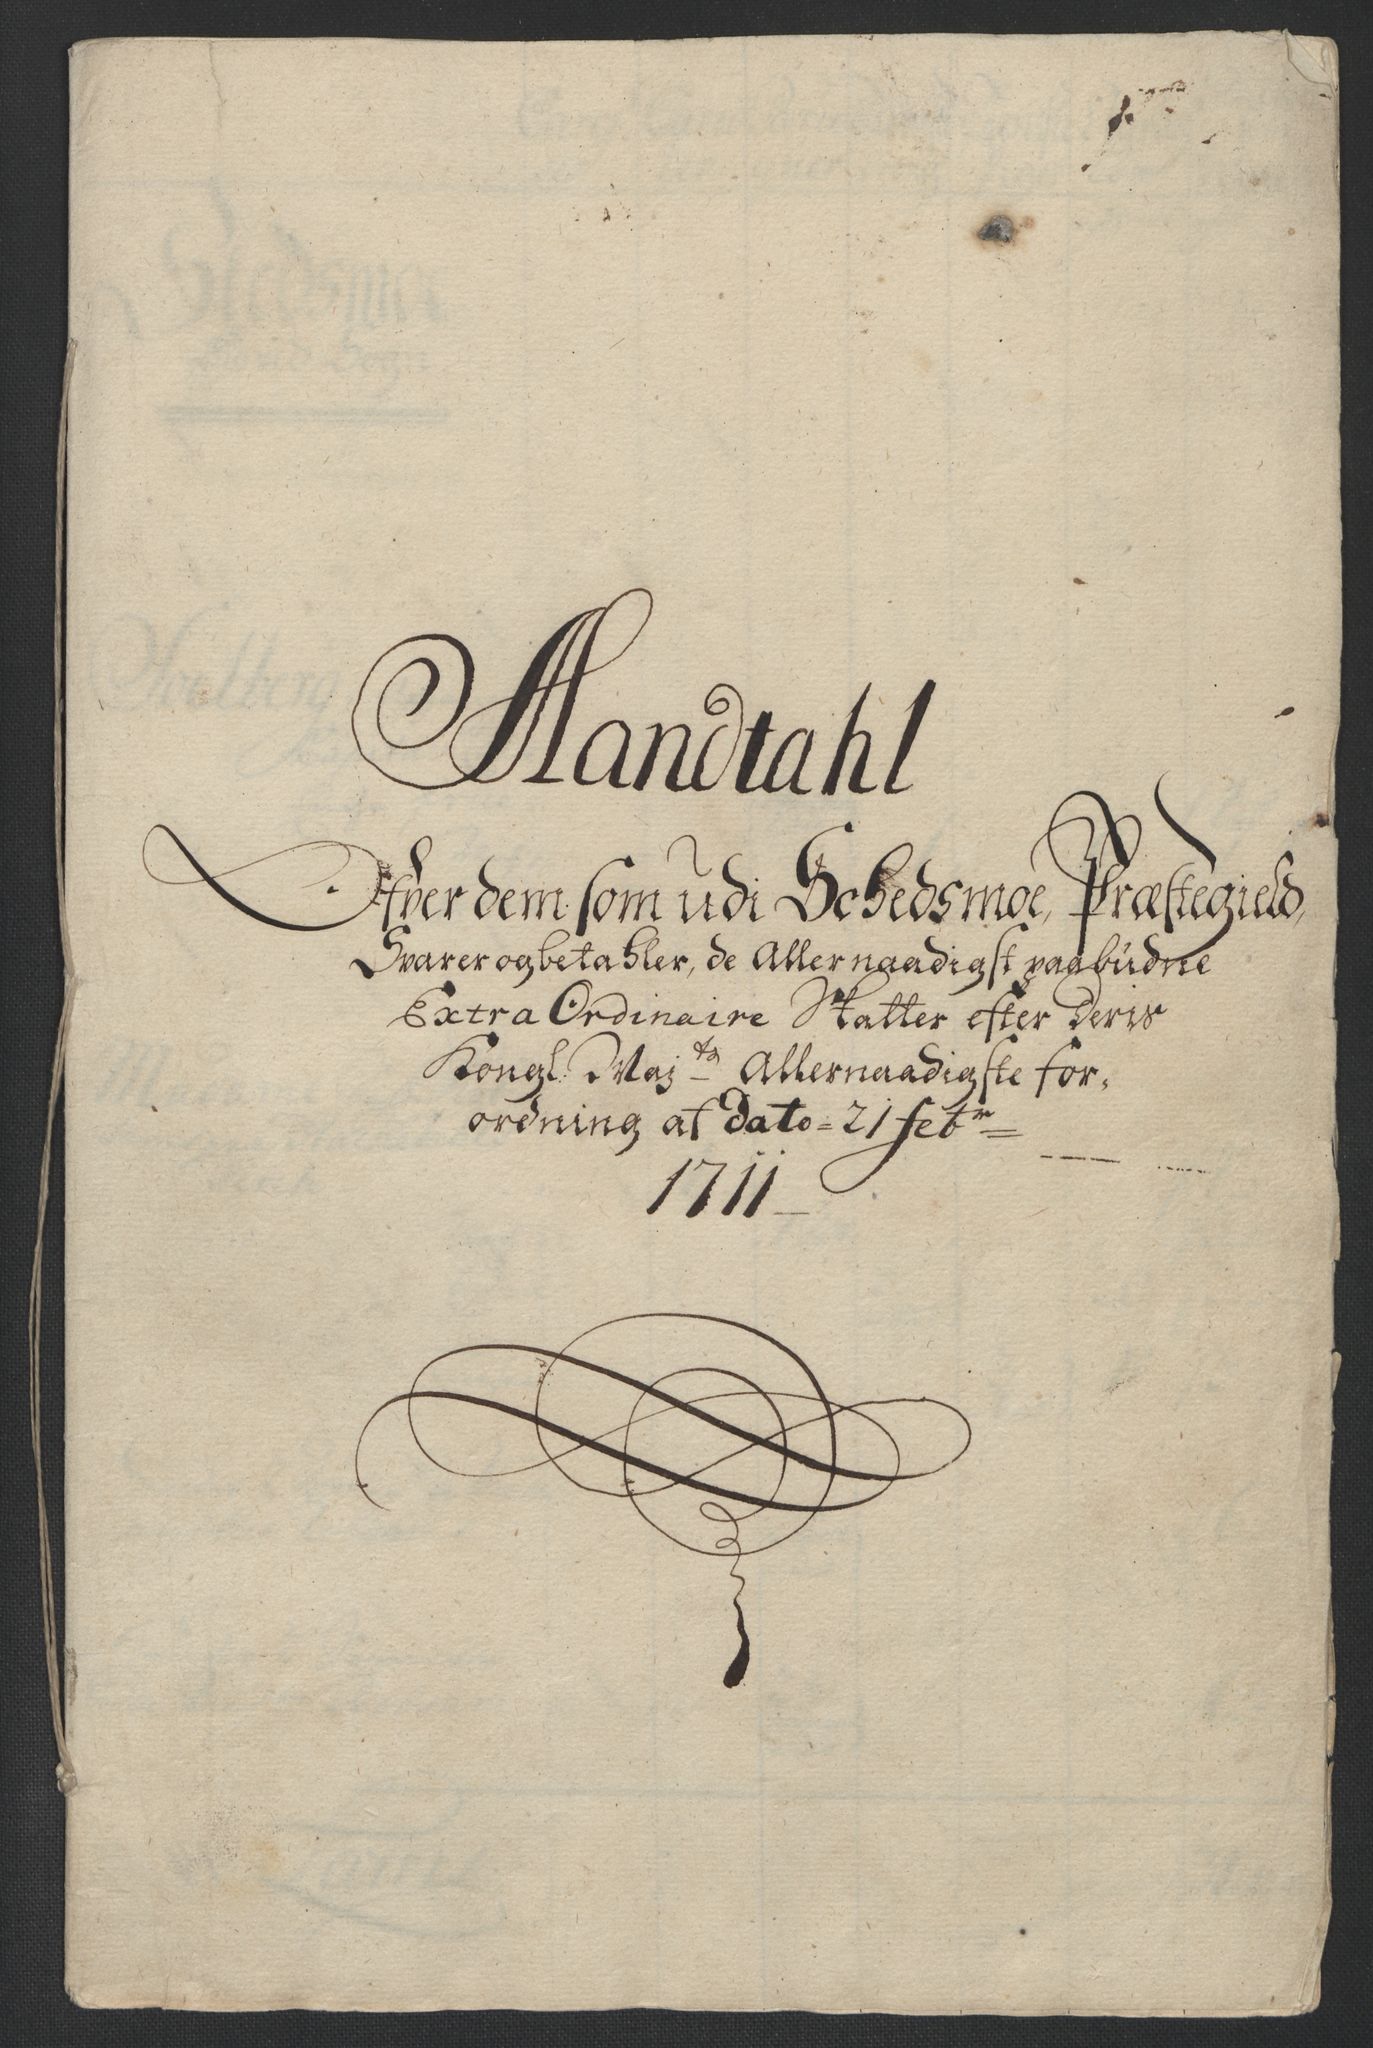 Mandtahl
Ofver dem som udi Schedsmoe, Præstegield,
Svarer og betahler, de Allernaadigst paabudne
Extra Ordinaire Skatter efter Deris
Kongl. Maj:ts Allernaadigste for,
ordning af Dato = 21 febr =
1711